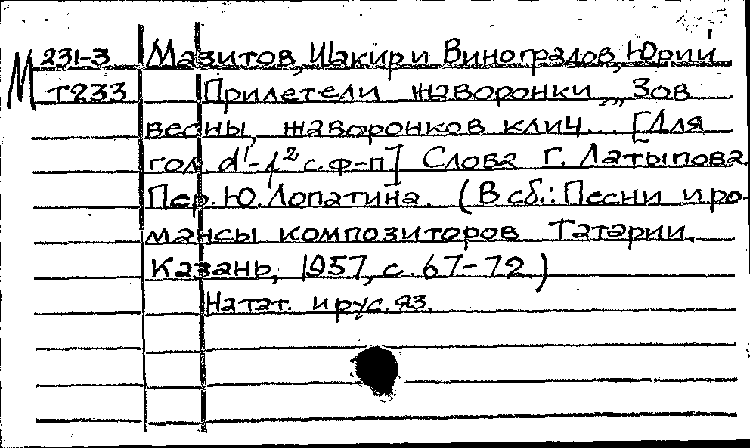 М 231-3 Мазитов, Шакир и Виноградов, Юрий
Т233 Прилетели жаворонки „Зов
весны, жаворонков клич... [Для
гол. d¹-f² с. ф-п] Слова Г. Латыпова.
Пер. Ю. Лопатина. (В сб.: Песни и ро-
мансы композиторов Татарии.
Казань, 1957, с. 67-72)
На тат. и рус. яз.